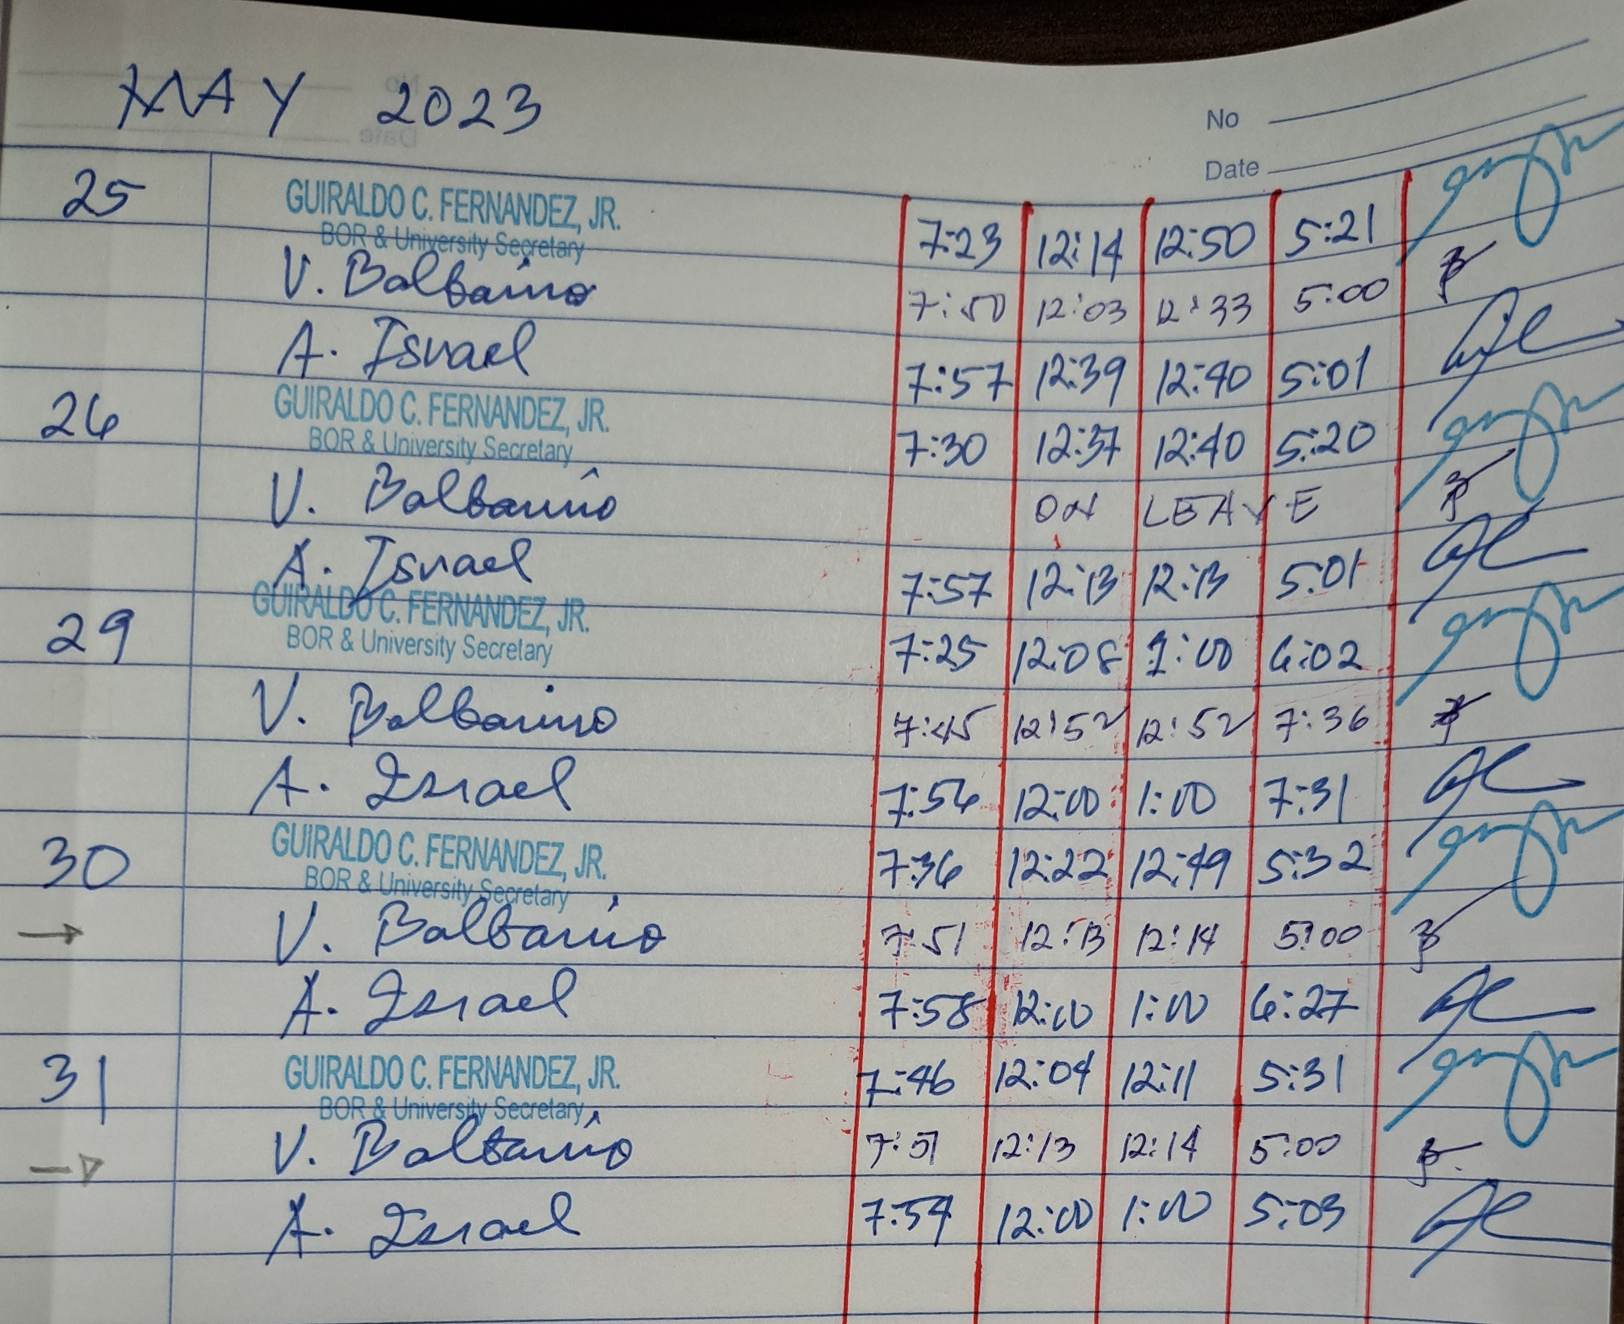 MAY 2023
No
Date
25 GUIRALDO C. FERNANDEZ, JR. 7:23 12:14 12:50 5:21
BOR & University Secretary
V. Balbarino 7:50 12:03 12:33 5:00
A. Israel 7:57 12:39 12:40 5:01
26 GUIRALDO C. FERNANDEZ, JR. 7:30 12:37 12:40 5:20
BOR & University Secretary
V. Balbarino ON LEAVE
A. Israel 7:57 12:13 12:13 5:01
29 GUIRALDO C. FERNANDEZ, JR. 7:25 12:08 1:00 6:02
BOR & University Secretary
V. Balbarino 7:45 12:52 12:52 7:36
A. Israel 7:56 12:00 1:00 7:31
30 GUIRALDO C. FERNANDEZ, JR. 7:36 12:22 12:49 5:32
BOR & University Secretary
→ V. Balbarino 7:51 12:13 12:14 5:00
A. Israel 7:58 12:00 1:00 6:27
31 GUIRALDO C. FERNANDEZ, JR. 7:46 12:04 12:11 5:31
BOR & University Secretary
→ V. Balbarino 7:51 12:13 12:14 5:00
A. Israel 7:54 12:00 1:00 5:03